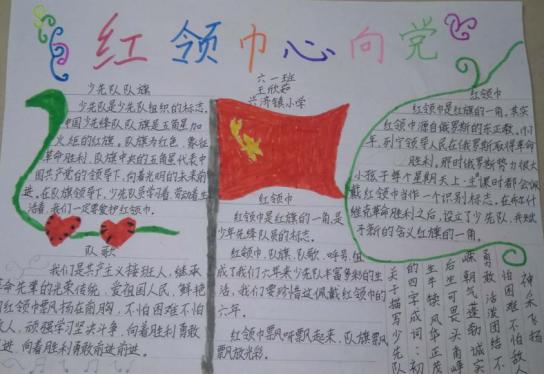 红领巾心向党
六一班
王欣茹
兴济镇小学
少先队队旗
少先队是少先队组织的标志,
中国少年先锋队队旗是五角星加
火炬的红旗。队旗为红色,象征
革命胜利。队旗中央的五角星代表中
国共产党的领导下,向着光明的未来前
进。在队旗领导下,少先队员学习着,劳动着生
活着,我们一定要爱护红领巾。
队歌
我们是共产主义接班人,继承
革命先辈的光荣传统,爱祖国人民,鲜艳
的红领巾飘扬在前胸,不怕困难不怕
敌人,顽强学习坚决斗争,向着胜利勇敢
前进,向着胜利勇敢前进前进。
红领巾
红领巾是红旗的一角是
少年先锋队员的标志。
红领巾、队旗、队歌、呼号、组
成了我们六年来少先队丰富多彩的生
活,我们要珍惜这佩戴红领巾的
六年。
红领巾飘呀飘起来,队旗飘呀
飘放光彩。
红领巾
红领巾是红旗的一角。其实
红领巾源自俄罗斯的东正教。1917
年,列宁领导人民在俄罗斯取得革命
胜利。那时俄罗斯势力很大
小孩子每个星期天上
戴红领巾当作一个识别标志。在布尔什
维克革命胜利之后,设立了少先队,我赋
予新的含义红旗的一角。
神采飞扬
不怕困难不怕敌人
勇敢活泼团结
朝气蓬勃诚实
后生可畏
生牛犊
的字
关于描写少先队